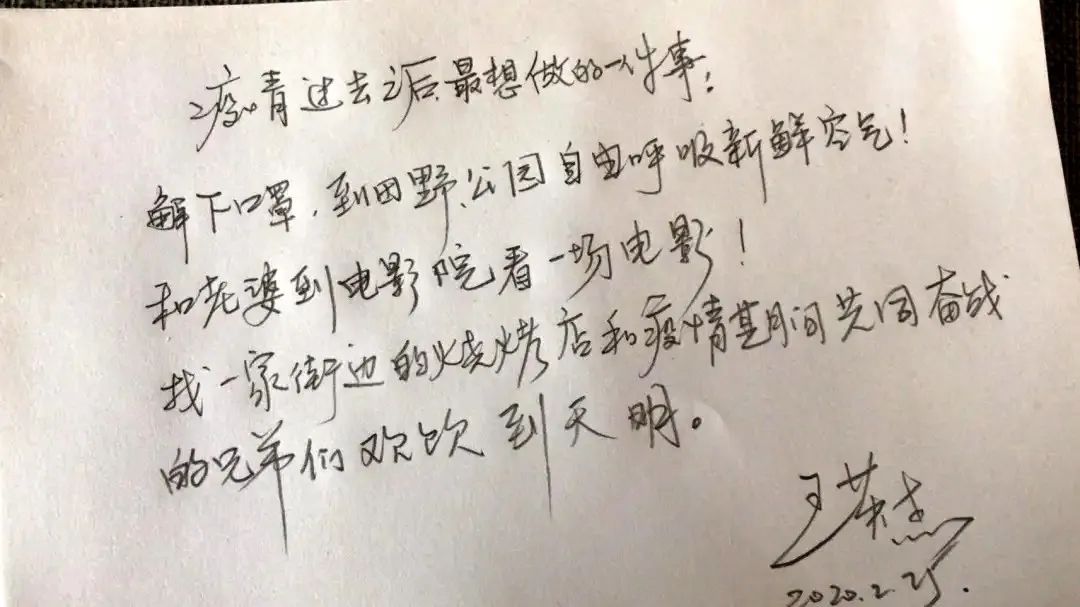 疫情过去之后最想做的一件事:
解下口罩,到田野、公园自由呼吸新鲜空气!
和老婆到电影院看一场电影!
找一家街边的烧烤店和疫情期间共同奋战
的兄弟们欢饮到天明。
王荣杰
2020.2.25.